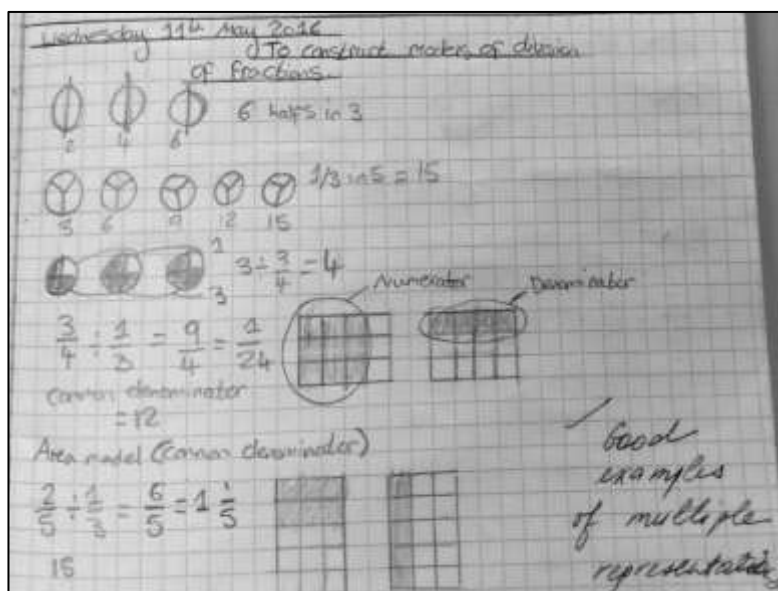 Wednesday 11th May 2016
To construct models of division
of fractions.
2 4 6 6 halfs in 3
3 6 9 12 15 1/3 in 5 = 15
1
3 ÷ 3/4 = 4
3
Numerator Denominator
3/4 ÷ 1/3 = 9/4 = 1/24
common denominator
= 12
Area model (common denominator)
2/5 ÷ 1/3 = 6/5 = 1 1/5
15
Good
examples
of multiple
representations